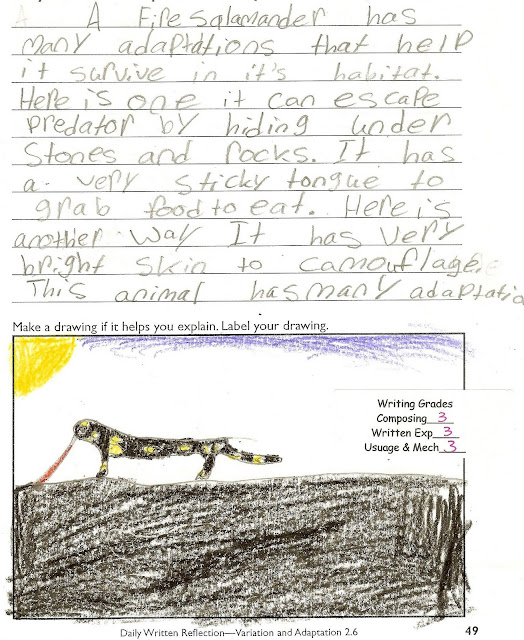 A Fire salamander has
many adaptations that help
it survive in it's habitat.
Here is one it can escape
predator by hiding under
Stones and rocks. It has
a very sticky tongue to
grab food to eat. Here is
another way It has very
bright skin to camouflage.
This animal has many adaptatio
Make a drawing if it helps you explain. Label your drawing.
Writing Grades
Composing 3
Written Exp 3
Usuage & Mech 3
Daily Written Reflection—Variation and Adaptation 2.6 49